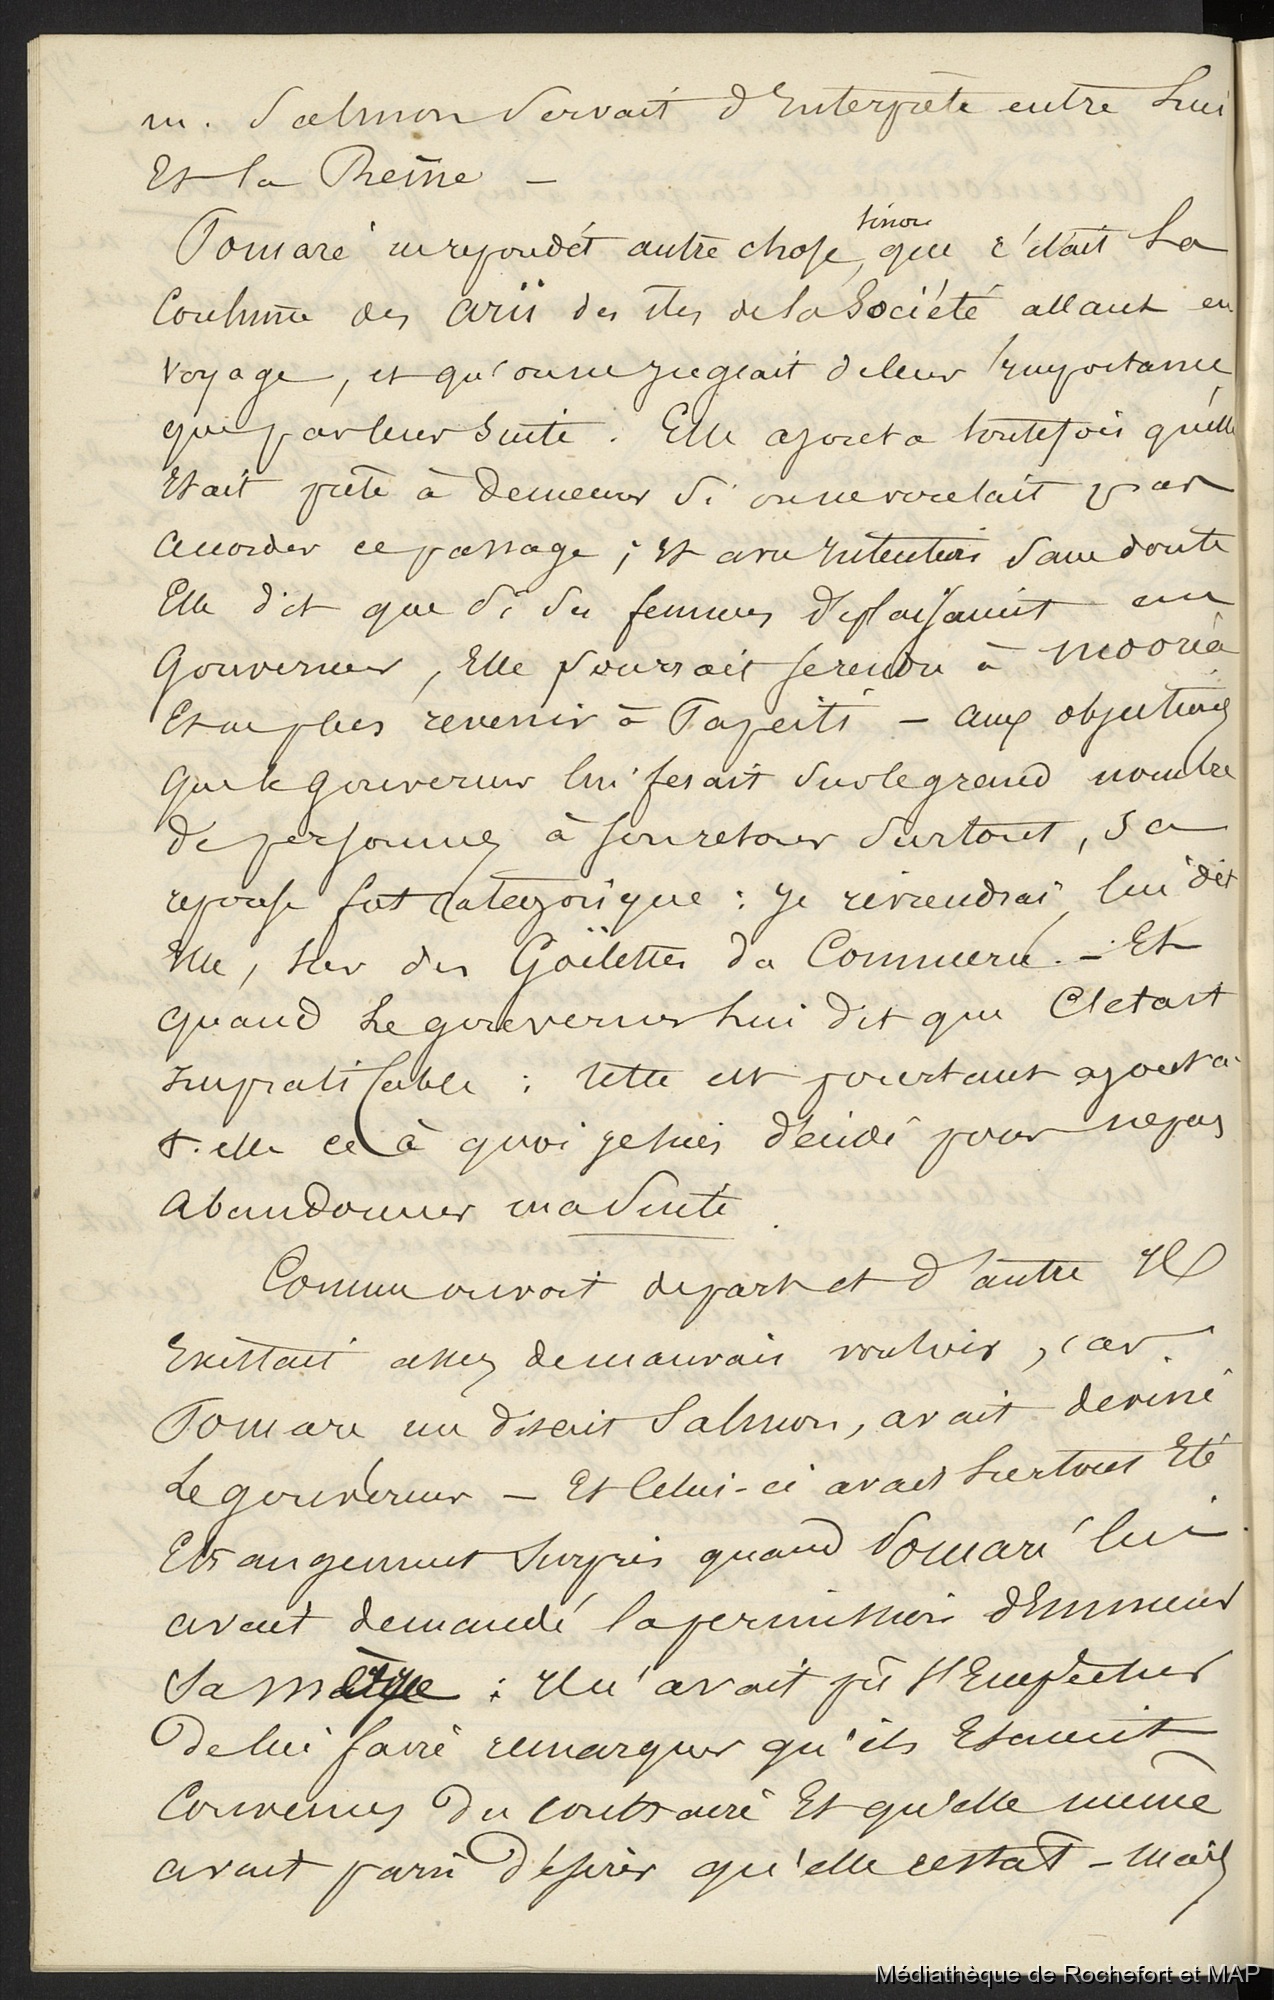 m. Salmon servait d'Interprète entre lui
Et la Reine –
Pomaré ne répondit autre chose, sinon que c'était la
Coutume des arii des îles de la Société allant en
voyage, et qu'on ne jugeait de leur Importance
que par leur suite. Elle ajouta toutefois qu'elle
Etait prête à demeurer si on ne voulait pas
accorder ce passage ; et avec Intention sans doute
Elle dit que si ses femmes déplaisaient au
Gouverneur, Elle pourrait se rendre à Mooréa
Et ne plus revenir à Papeiti – aux objections
que le gouverneur lui fesait sur le grand nombre
de personnes à son retour surtout, sa
réponse fut catégorique : je reviendrai, lui dit
Elle, sur des Goëlettes du Commerce. – Et
quand le gouverneur lui dit que C'etait
Impraticable : telle est pourtant ajouta
t-elle ce à quoi je suis décidé pour ne pas
abandonner ma suite.
Comme on voit de part et d'autre Il
Existait assez de mauvais vouloir, car
Pomaré me disait Salmon, avait deviné
Le gouverneur – Et Celui-ci avait surtout Eté
Etrangement surpris quand Pomaré lui
avait demandé la permission d'Emmener
sa : Il n'avait pû s'Empêcher
De lui faire remarquer qu'ils Etaient
Convenus du contraire Et qu'elle même
avait paru désirer qu'elle restat – Mais
Médiathèque de Rochefort et MAP